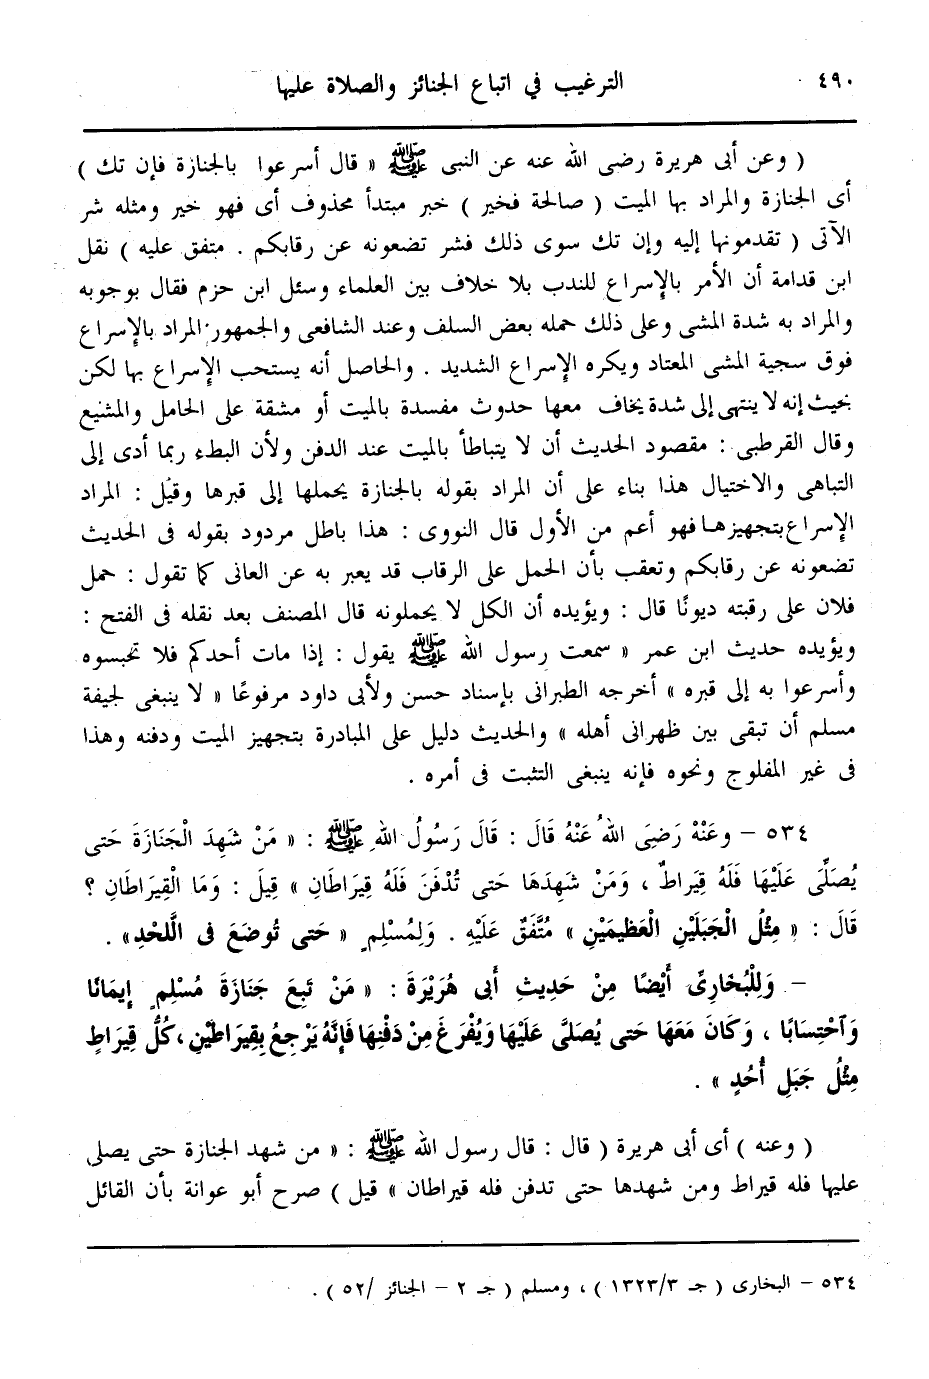 ٤٩٠ الترغيب في اتباع الجنائز والصلاة عليها
( وعن أبى هريرة رضى الله عنه عن النبى ﷺ « قال أسرعوا بالجنازة فإن تك )
أى الجنازة والمراد بها الميت ( صالحة فخير ) خبر مبتدأ محذوف أى فهو خير ومثله شر
الآتى ( تقدمونها إليه وإن تك سوى ذلك فشر تضعونه عن رقابكم . متفق عليه ) نقل
ابن قدامة أن الأمر بالإسراع للندب بلا خلاف بين العلماء وسئل ابن حزم فقال بوجوبه
والمراد به شدة المشى وعلى ذلك حمله بعض السلف وعند الشافعى والجمهور المراد بالإسراع
فوق سجية المشى المعتاد ويكره الإسراع الشديد . والحاصل أنه يستحب الإسراع بها لكن
بحيث إنه لا ينتهى إلى شدة يخاف معها حدوث مفسدة بالميت أو مشقة على الحامل والمشيع
وقال القرطبى : مقصود الحديث أن لا يتباطأ بالميت عند الدفن ولأن البطء ربما أدى إلى
التباهى والاختيال هذا بناء على أن المراد بقوله بالجنازة يحملها إلى قبرها وقيل : المراد
الإسراع بتجهيزها فهو أعم من الأول قال النووى : هذا باطل مردود بقوله فى الحديث
تضعونه عن رقابكم وتعقب بأن الحمل على الرقاب قد يعبر به عن العانى كما تقول : حمل
فلان على رقبته ديونًا قال : ويؤيده أن الكل لا يحملونه قال المصنف بعد نقله فى الفتح :
ويؤيده حديث ابن عمر « سمعت رسول الله ﷺ يقول : إذا مات أحدكم فلا تحبسوه
وأسرعوا به إلى قبره » أخرجه الطبرانى بإسناد حسن ولأبى داود مرفوعًا « لا ينبغى لجيفة
مسلم أن تبقى بين ظهرانى أهله » والحديث دليل على المبادرة بتجهيز الميت ودفنه وهذا
فى غير المفلوج ونحوه فإنه ينبغى التثبت فى أمره .
٥٣٤ – وعَنْهُ رَضِىَ اللهُ عَنْهُ قَالَ : قَالَ رَسُولُ اللهِ ﷺ : « مَنْ شَهِدَ الْجَنَازَةَ حَتى
يُصَلَّى عَلَيْهَا فَلَهُ قِيَراطٌ ، وَمَنْ شَهِدَهَا حَتى تُدْفَنَ فَلَهُ قِيَراطَانِ » قِيلَ : وَمَا الْقِيَراطَانِ ؟
قَالَ : « مِثْلُ الْجَبَلَيْنِ الْعَظِيمَيْنِ » مُتَّفَقٌ عَلَيْهِ . وَلِمُسْلِمٍ « حَتى تُوضَعَ فى الَّلحْدِ» .
– وَلِلْبُخَارِىِّ أَيْضًا مِنْ حَدِيثِ أَبى هُرَيْرَةَ : « مَنْ تَبِعَ جَنَازَةَ مُسْلِمٍ إِيمَانًا
وَآحْتِسَابًا ، وَكَانَ مَعَهَا حَتى يُصَلَّى عَلَيْهَا وَيُفْرَغَ مِنْ دَفْنِهَا فَإِنَّهُ يَرْجِعُ بِقِيَراطَيْنِ ، كُلُّ قِيَراطٍ
مِثْلُ جَبَلِ أُحُدٍ » .
( وعنه ) أى أبى هريرة ( قال : قال رسول الله ﷺ : « من شهد الجنازة حتى يصلى
عليها فله قيراط ومن شهدها حتى تدفن فله قيراطان » قيل ) صرح أبو عوانة بأن القائل
٥٣٤ – البخارى ( جـ ١٣٢٣/٣ ) ، ومسلم ( جـ ٢ – الجنائز /٥٢ ) .